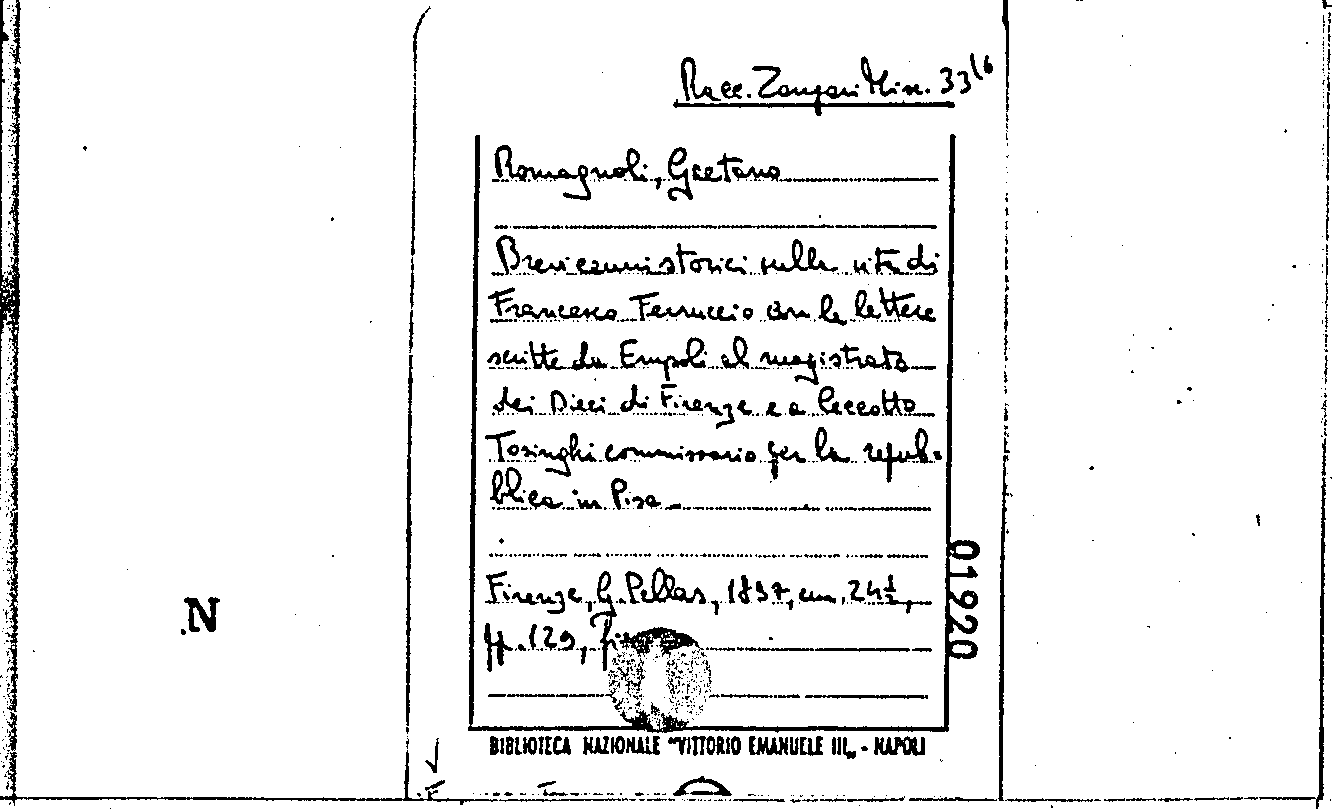 Racc. Zangari Misc. 33/6
Romagnoli, Gaetano
Brevi cenni storici sulla vita di
Francesco Ferruccio con le lettere
scritte da Empoli al magistrato
dei Dieci di Firenze e a Ceccotto
Tosinghi commissario per la repub=
blica in Pisa
Firenze, G. Pellas, 1857, cm. 24½,
pp. 129,
01920
.N
BIBLIOTECA NAZIONALE "VITTORIO EMANUELE III„ - NAPOLI